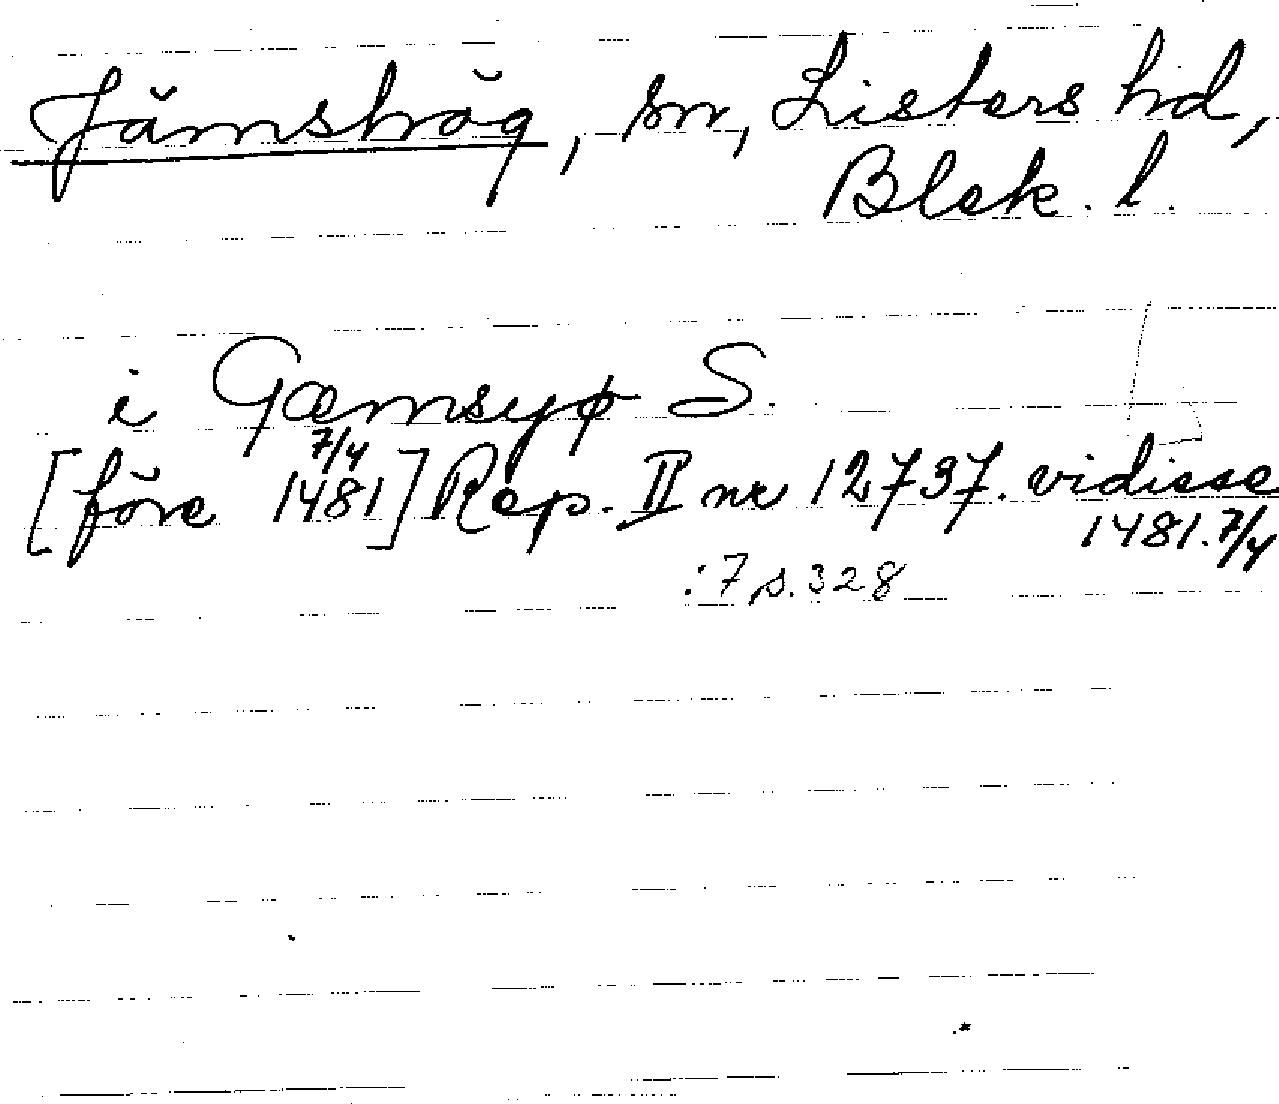 Jämshög, sn, Listers hd,
Blek. l.
i Gæmsyø S.
[före 7/4 1481] Rep. II nr 12737. vidisse
1481. 7/4
: 7 s. 328